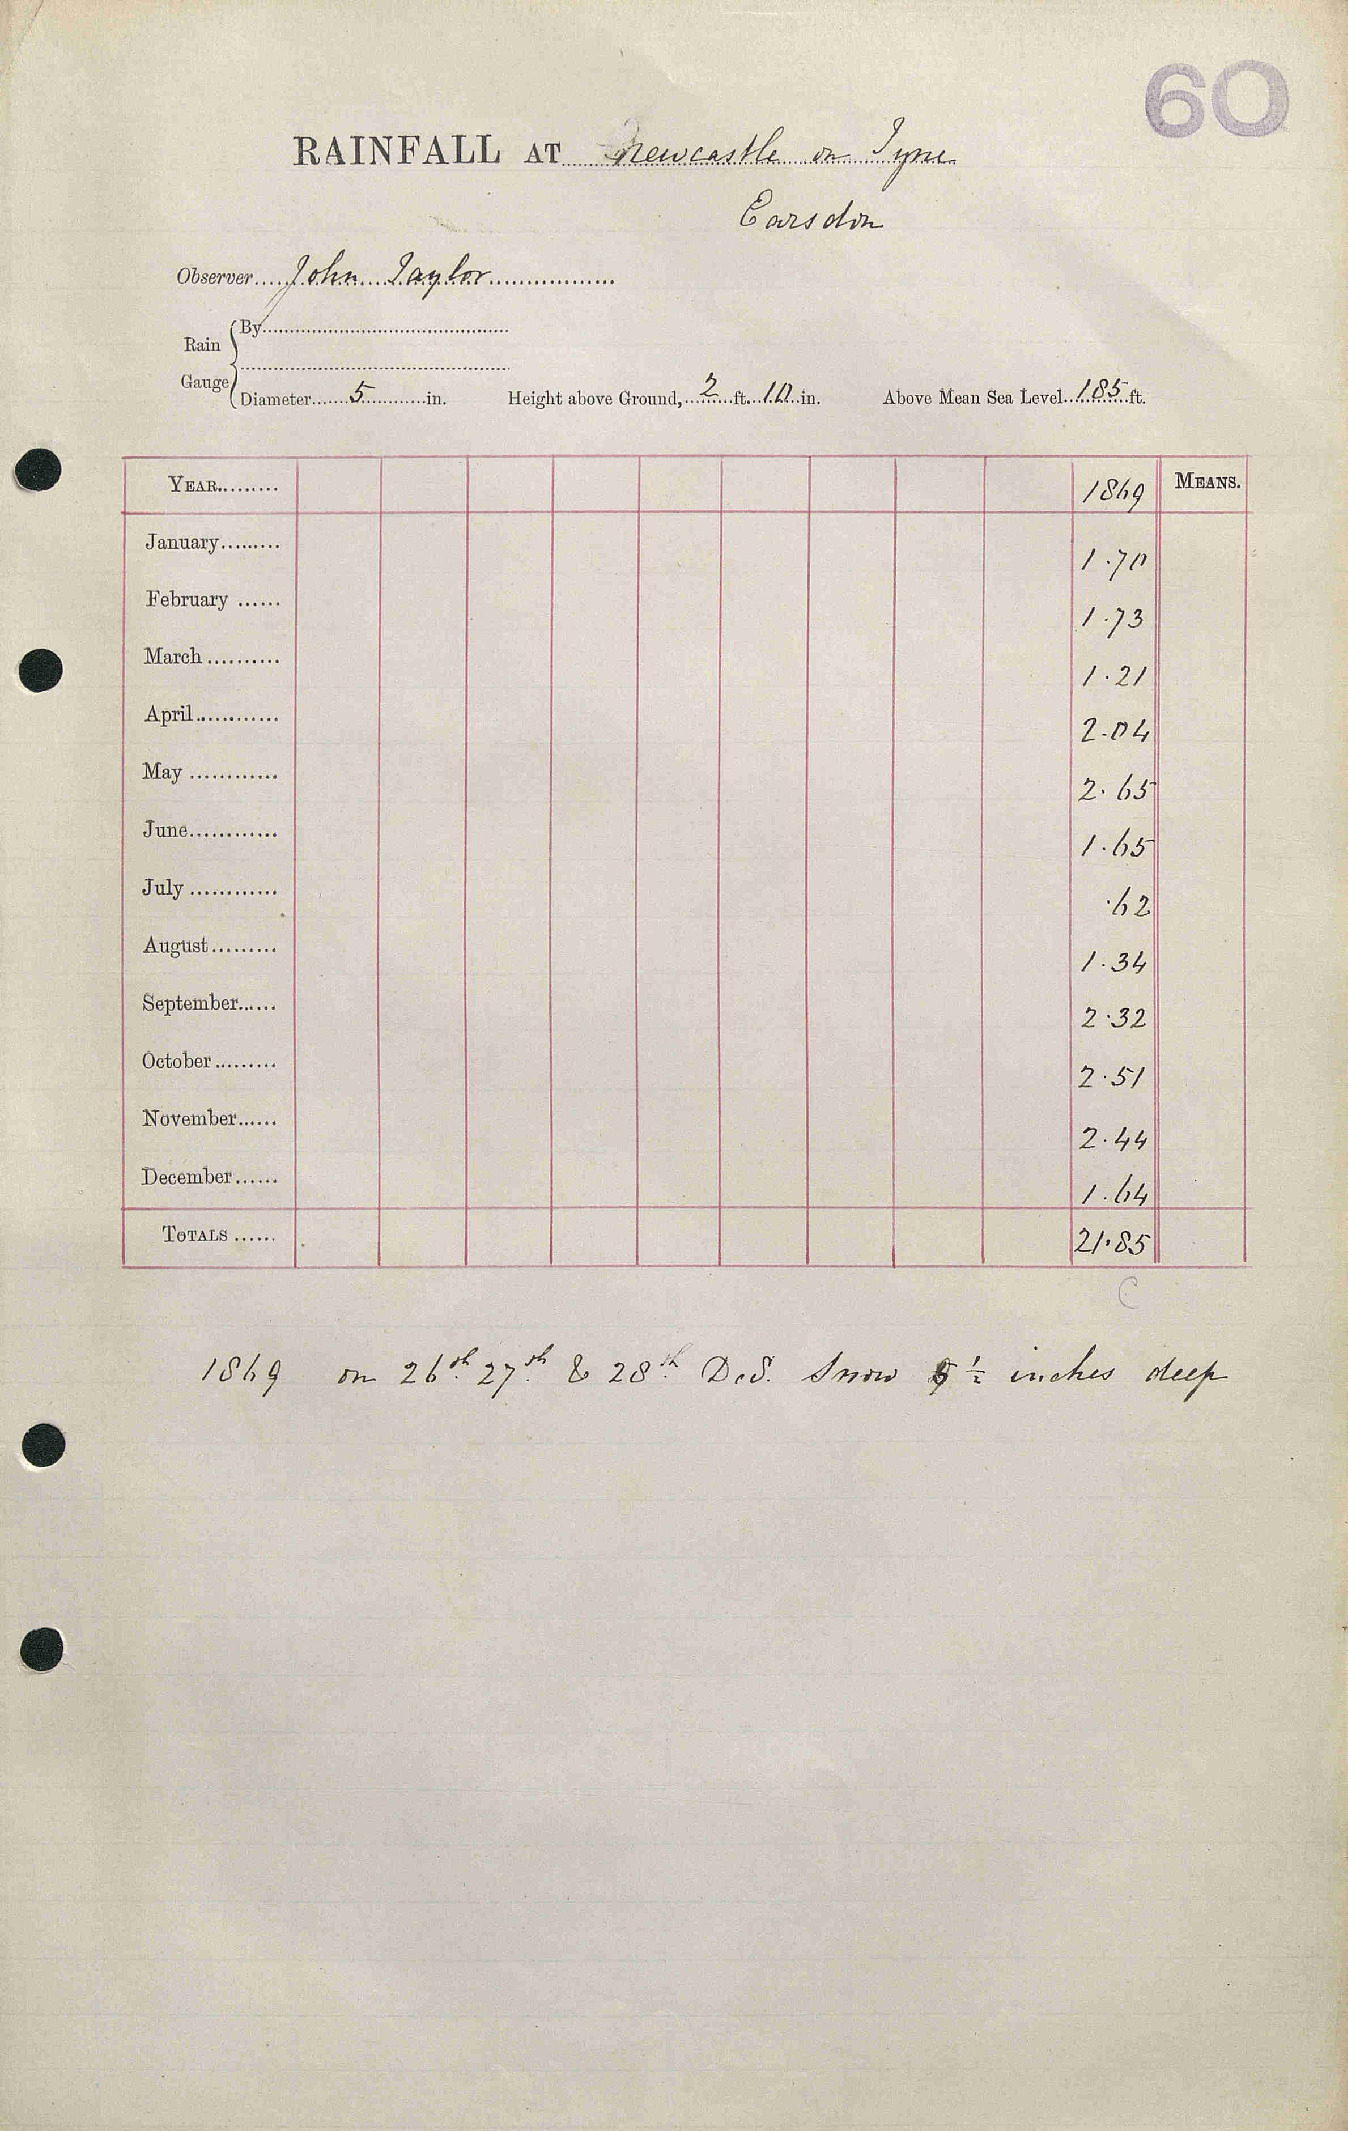 60
RAINFALL AT Newcastle on Tyne
Earsdon
Observer John Taylor
Rain Gauge
By
Diameter 5 in. Height above Ground, 2 ft. 10 in. Above Mean Sea Level 185 ft.
YEAR 1869 MEANS.
January 1.70
February 1.73
March 1.21
April 2.04
May 2.65
June 1.65
July .62
August 1.34
September 2.32
October 2.51
November 2.44
December 1.64
TOTALS 21.85
C
1869 on 26th 27th & 28th Dec. Snow ½ inches deep